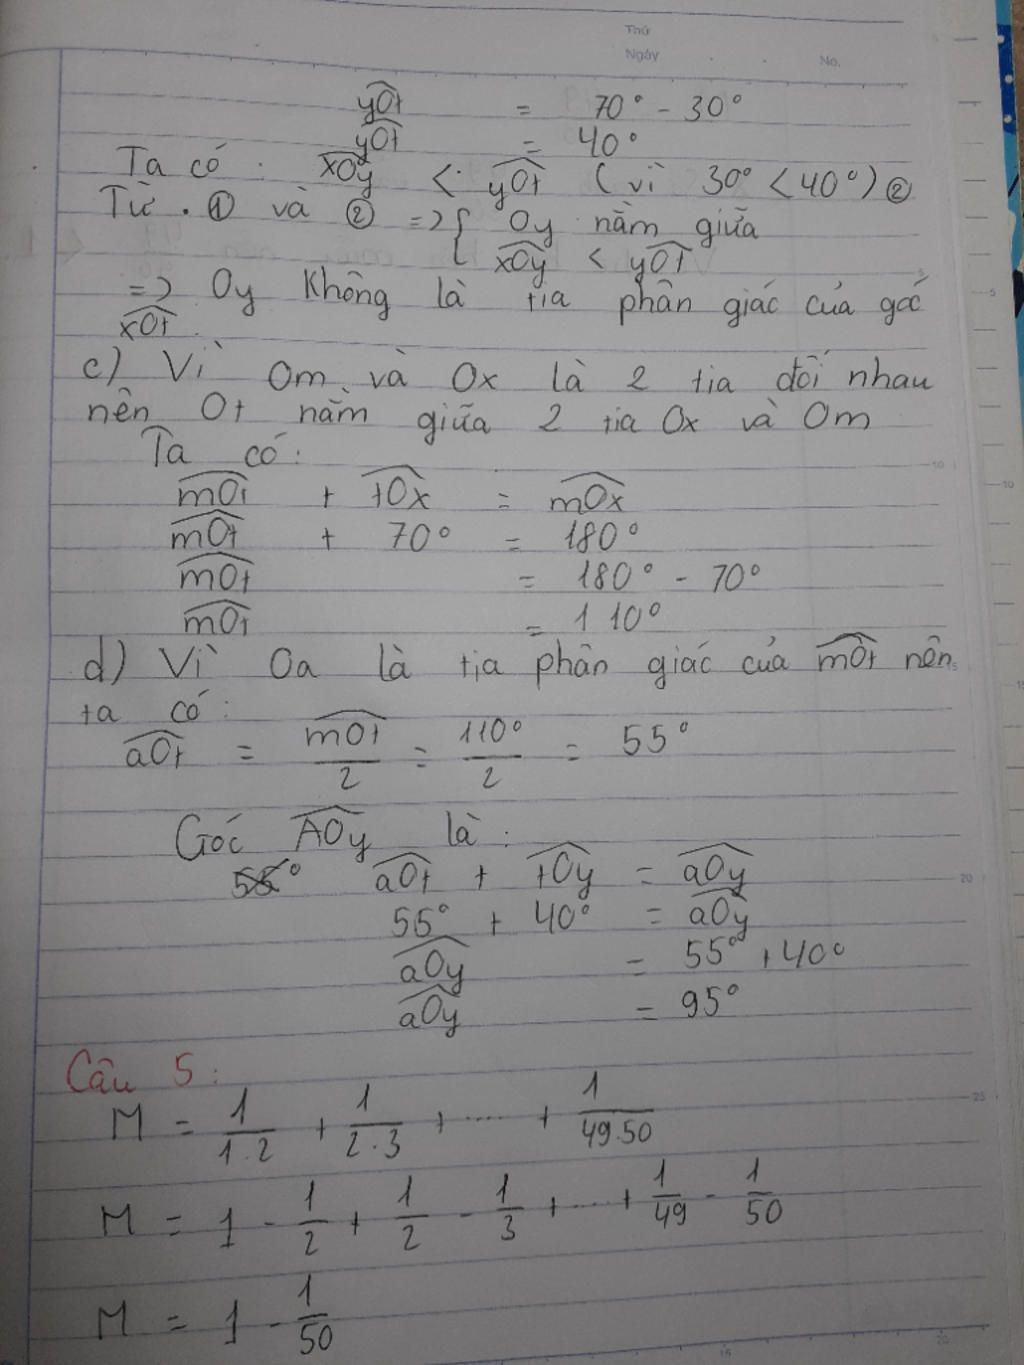 Thứ
Ngày No.
yOt = 70° - 30°
yOt = 40°
Ta có: xOy < yOt (vì 30° < 40°) ②
Từ ① và ② => { Oy nằm giữa
xOy < yOt
=> Oy không là tia phân giác của góc
xOt.
c) Vì Om và Ox là 2 tia đối nhau
nên Ot nằm giữa 2 tia Ox và Om
Ta có:
mOt + tOx = mOx
mOt + 70° = 180°
mOt = 180° - 70°
mOt = 110°
d) Vì Oa là tia phân giác của mOt nên
ta có:
aOt = mOt/2 = 110°/2 = 55°
Góc AOy là:
aOt + tOy = aOy
55° + 40° = aOy
aOy = 55° + 40°
aOy = 95°
Câu 5:
M = 1/1.2 + 1/2.3 + ..... + 1/49.50
M = 1 - 1/2 + 1/2 - 1/3 + ... + 1/49 - 1/50
M = 1 - 1/50